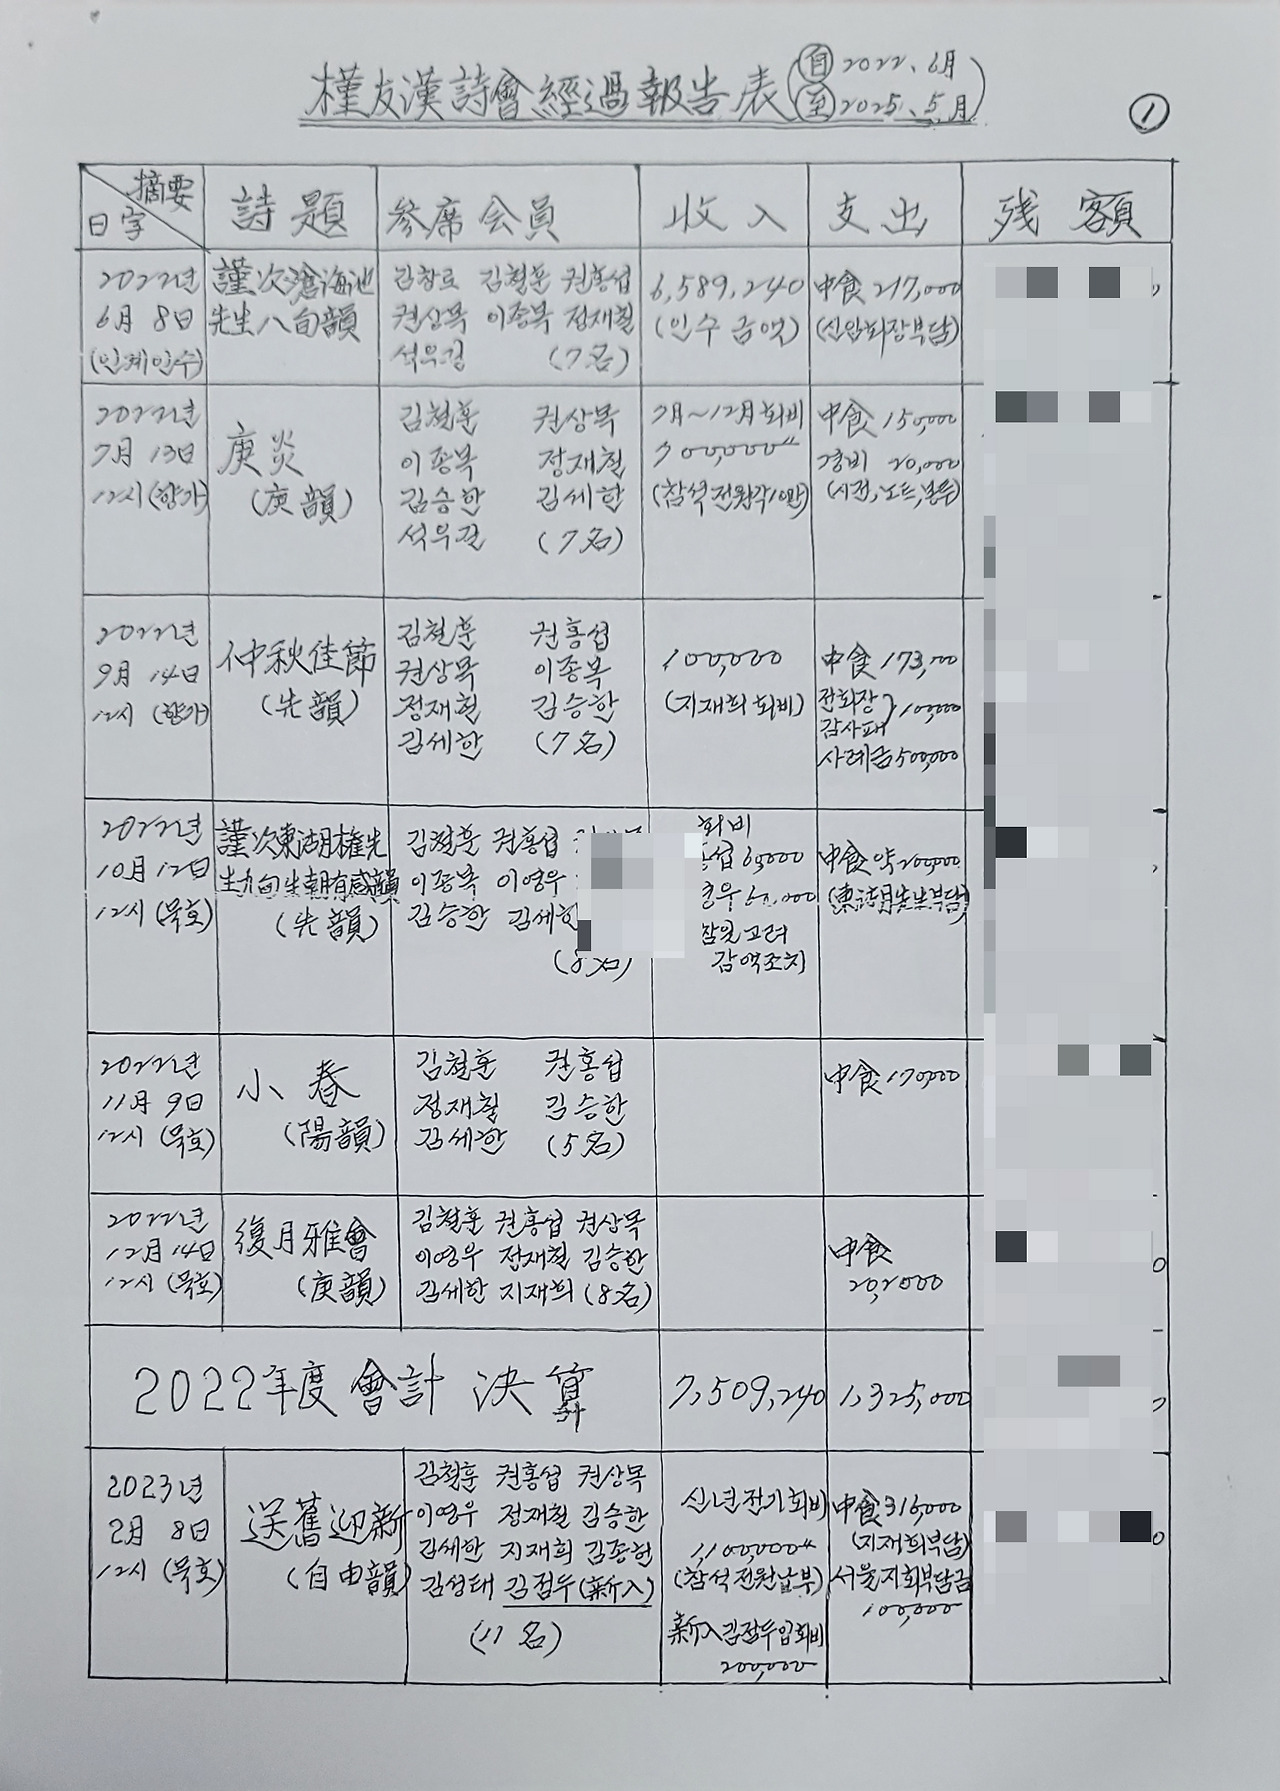 槿友漢詩會經過報告表 (自 2022. 6月
至 2025. 5月)
①
摘要
日字
詩題 參席会員 收入 支出 残額
2022년
6月 8日
(인계인수)
謹次滄海池
先生八旬韻
김창로 김철훈 권홍섭
권상목 이종묵 정재철
석우길 (7名)
6,589,240
(인수 금액)
中食 217,000
(신암회장부담)
2022년
7月 13日
12시 (향가)
庚炎
(庚韻)
김철훈 권상목
이종묵 정재철
김승한 김세한
석우길 (7名)
7月~12月 회비
700,000
(참석전원각10만)
中食 150,000
경비 20,000
2022년
9月 14日
12시 (향가)
仲秋佳節
(先韻)
김철훈 권홍섭
권상목 이종묵
정재철 김승한
김세한 (7名)
100,000
(지재희 회비)
中食 173,000
전회장
감사패 100,000
사례금 500,000
2022년
10月 12日
12시 (묵호)
謹次東湖權先
生九旬生朝有感韻
(先韻)
김철훈 권홍섭
이종묵 이영우
김승한 김세한
(8名)
회비
섭 60,000
영우 60,000
참원고려
감액조치
中食 약 200,000
(東湖先生부담)
2022년
11月 9日
12시 (묵호)
小春
(陽韻)
김철훈 권홍섭
정재철 김승한
김세한 (5名)
中食 170,000
2022년
12月 14日
12시 (묵호)
復月雅會
(庚韻)
김철훈 권홍섭 권상목
이영우 정재철 김승한
김세한 지재희 (8名)
中食
202,000
2022年度 會計 決算 7,509,240 1,325,000
2023년
2月 8日
12시 (묵호)
送舊迎新
(自由韻)
김철훈 권홍섭 권상목
이영우 정재철 김승한
김세한 지재희 김종현
김성태 김점두(新入)
(11名)
신년전기회비
1,100,000
(참석전원납부)
新入김점두입회비
200,000
中食 316,000
(지재희부담)
서울지회부담금
100,000